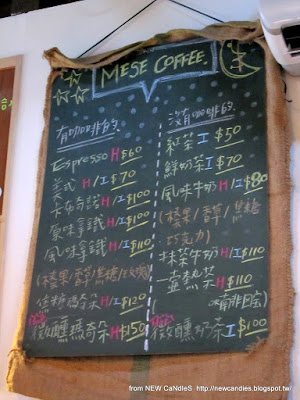 MESE COFFEE.
有咖啡的
Espresso H $60
美式 H/I $70
卡布奇諾 H/I $100
原味拿鐵 H/I $100
風味拿鐵 H/I $110
(榛果/香草/焦糖/玫瑰)
焦糖瑪奇朵 H/I $120
微醺瑪奇朵 H $150
沒有咖啡的
紅茶 I $50
鮮奶茶 I $70
風味牛奶 H/I $80
(榛果/香草/焦糖
巧克力)
抹茶牛奶 H/I $110
一壺熱茶 H $110
微醺奶茶 I $100
from NEW CaNdIeS http://newcandies.blogspot.tw/